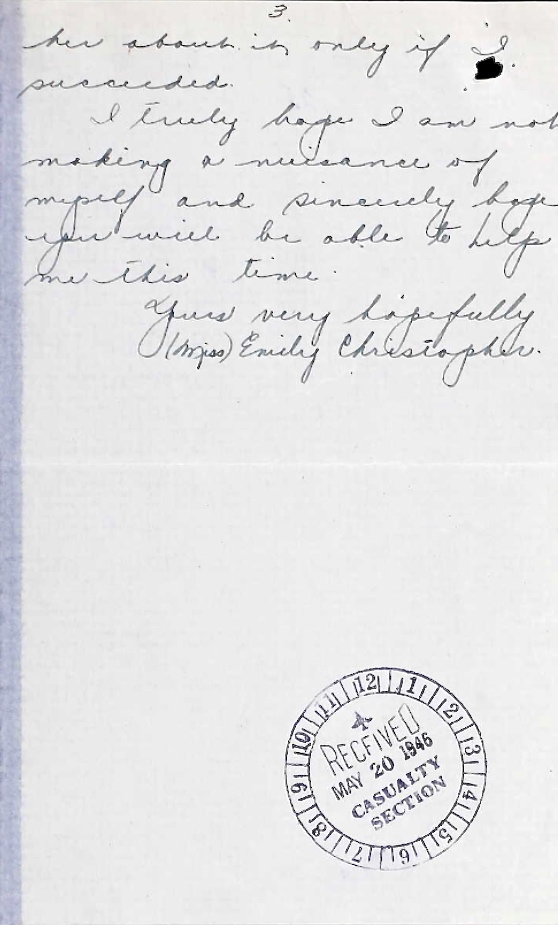 3.
her about it, only if I
succeeded.
I truly hope I am not
making a nuisance of
myself and sincerely hope
you will be able to help
me this time.
Yours very hopefully
(Miss) Emily Christopher.
12 1 2 3 4 5 6 7 8 9 10 11
RECEIVED
MAY 20 1946
CASUALTY
SECTION